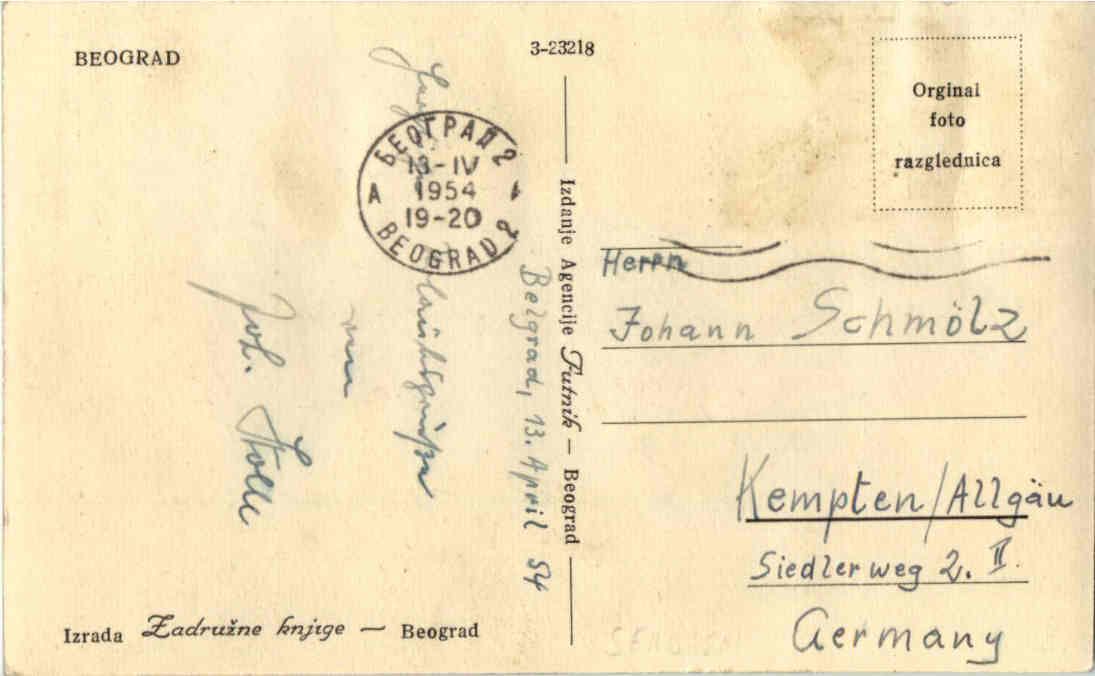 BEOGRAD
3-23218
Orginal
foto
razglednica
БЕОГРАД 2
13-IV
1954
19-20
A
BEOGRAD 2
Belgrad, 13. April 54
Joh.
Izdanje Agencije Putnik — Beograd
Herrn
Johann Schmölz
Kempten/Allgäu
Siedlerweg 2. II.
Germany
Izrada Zadružne knjige — Beograd